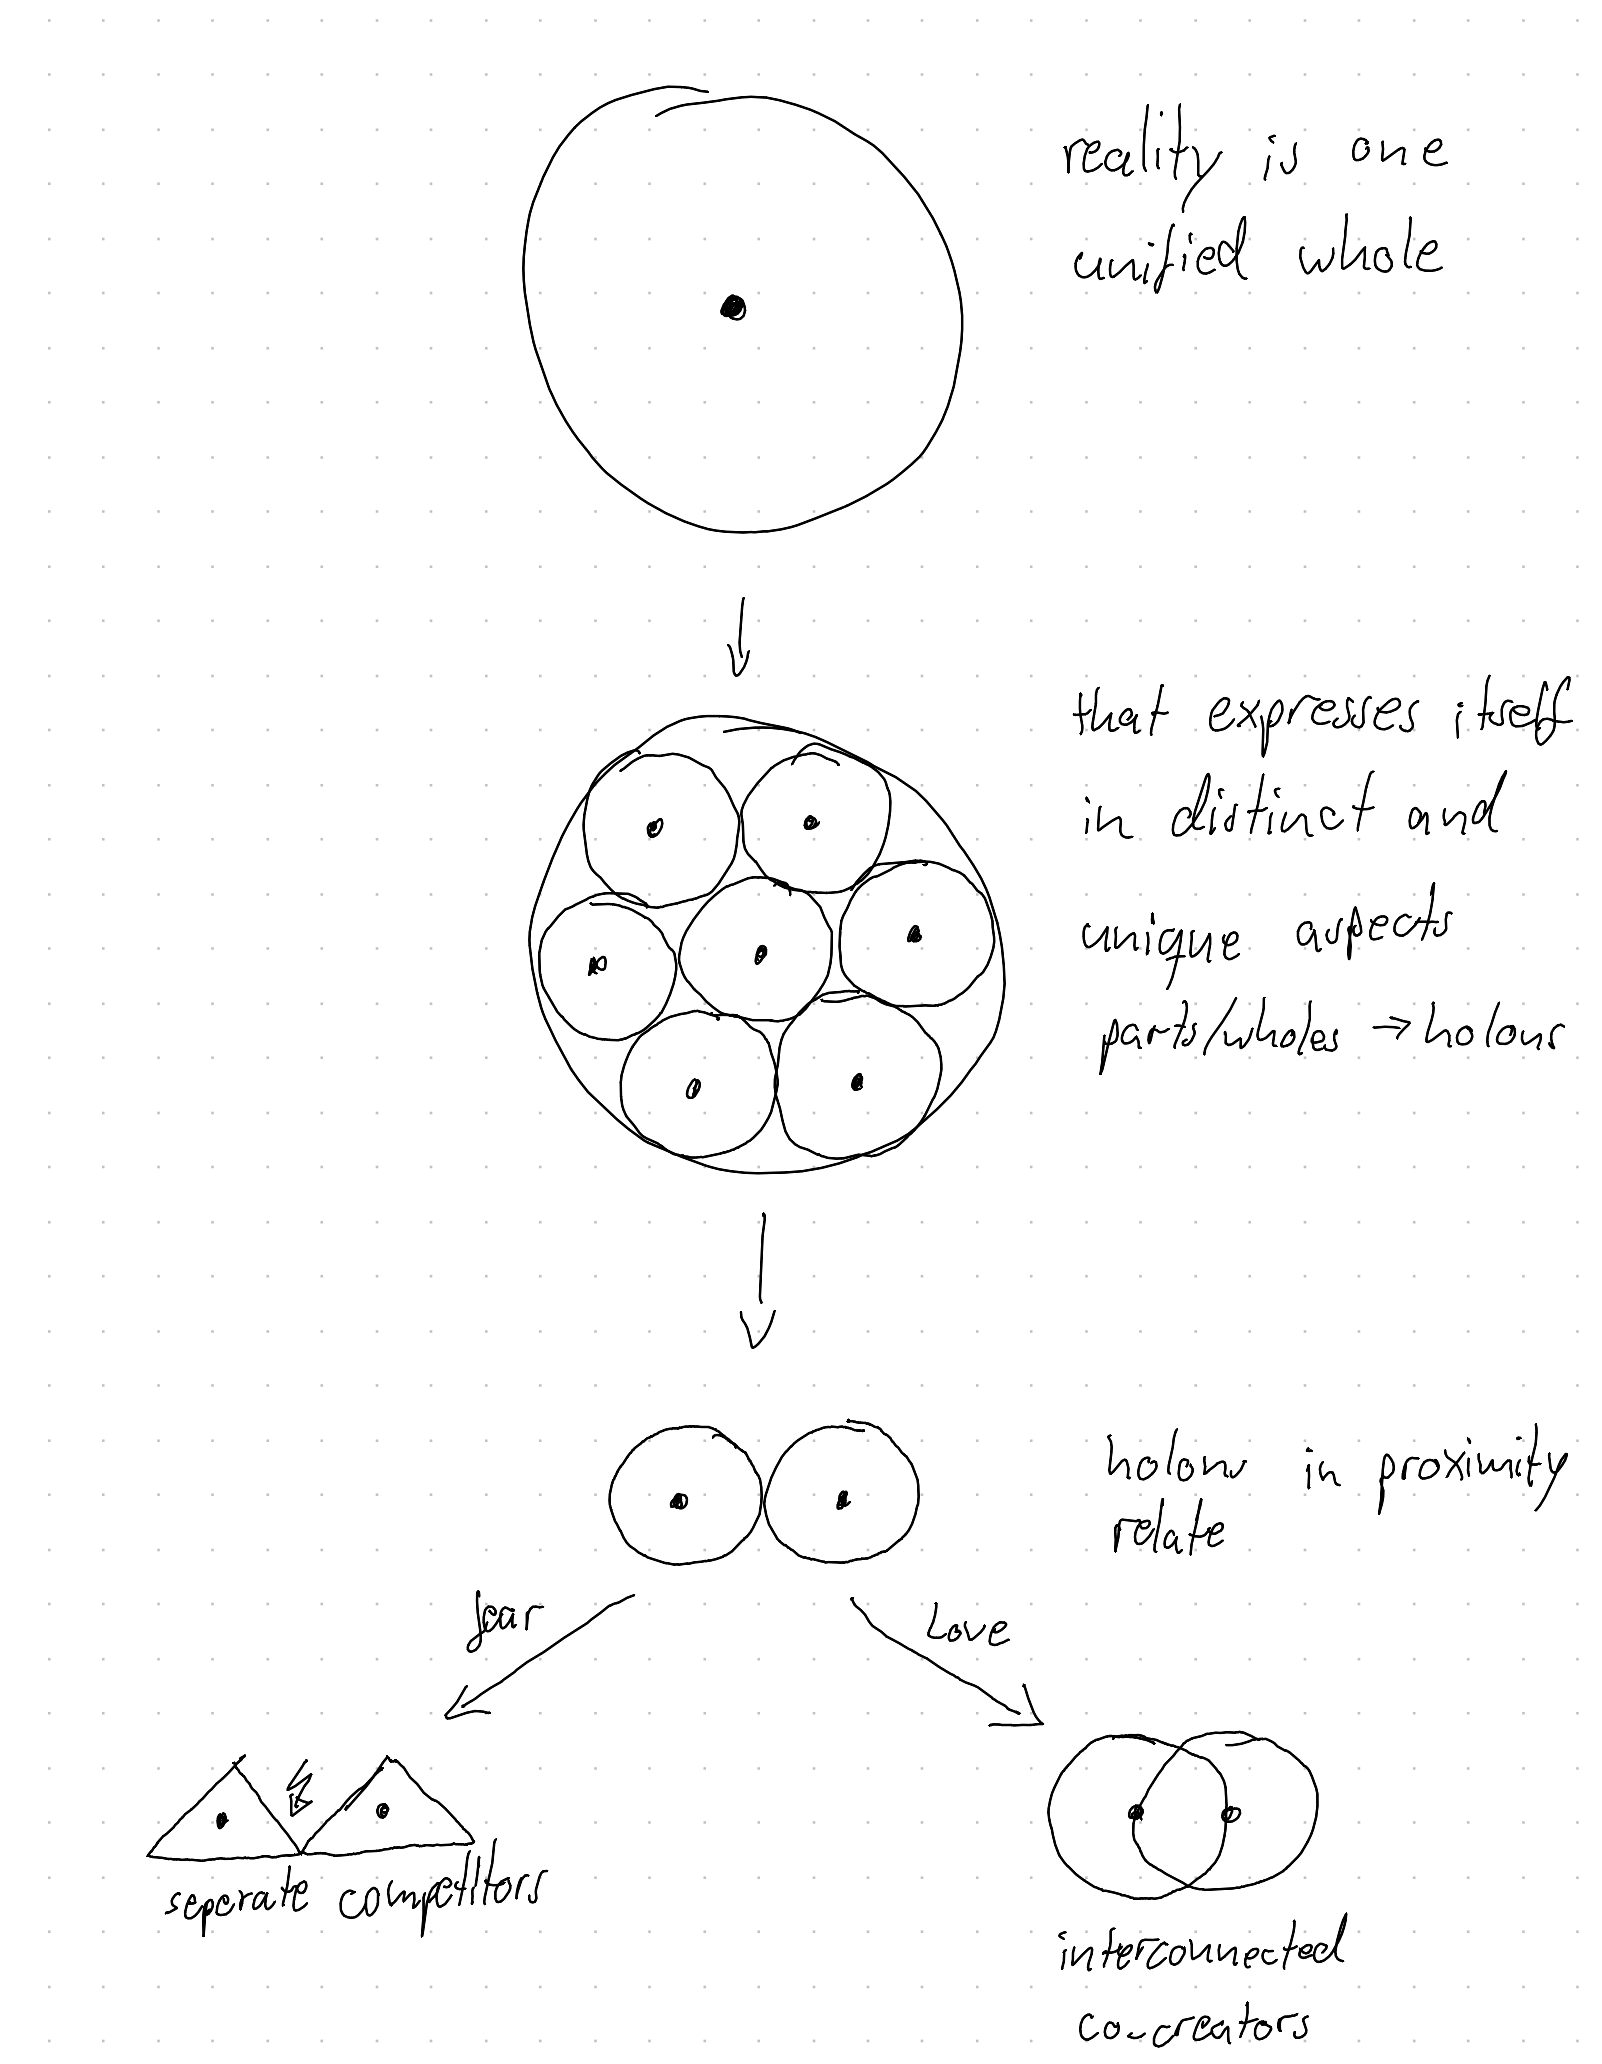 reality is one
unified whole
that expresses itself
in distinct and
unique aspects
parts/wholes → holons
holons in proximity
relate
fear
Love
seperate competitors
interconnected
co-creators